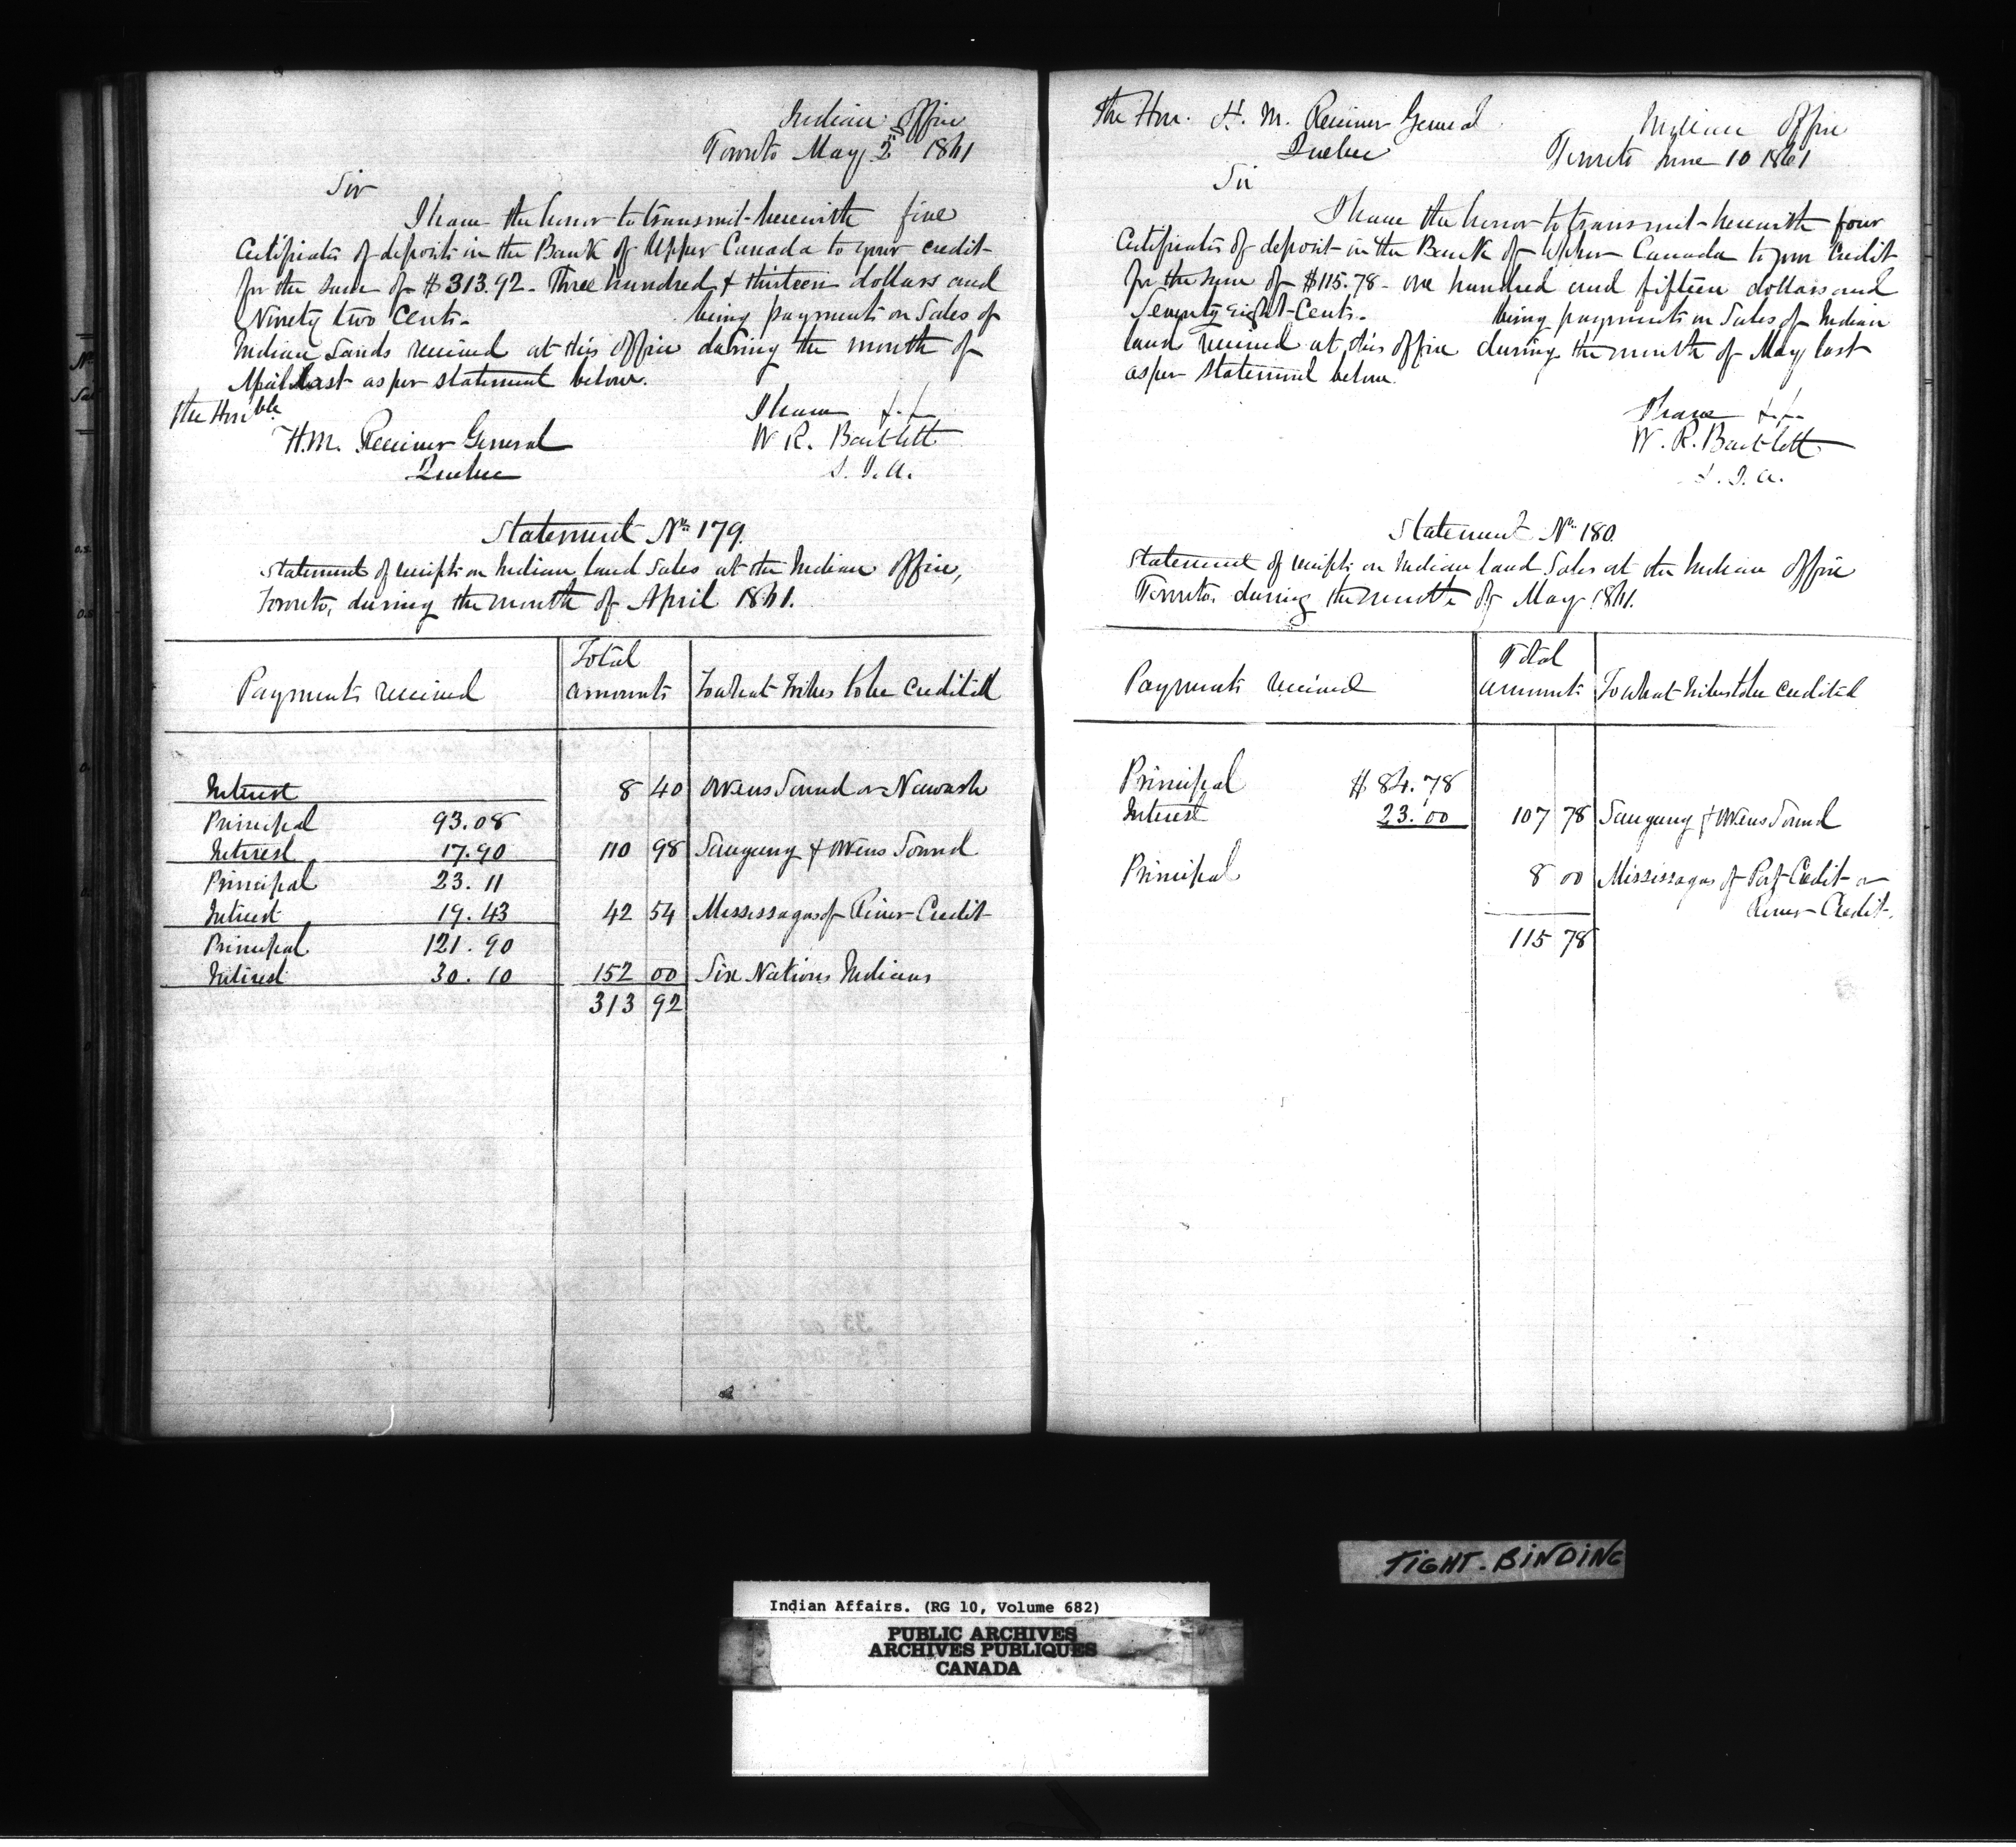 Indian Office
Toronto May 2nd 1861
Sir
I have the honor to transmit herewith five
Certificates of deposit in the Bank of Upper Canada to your credit
for the sum of $313.92 - Three hundred & thirteen dollars and
Ninety two Cents - being payments on Sales of
Indian Lands received at this Office during the month of
April last as per statement below.
The Honble
H.M. Receiver General
Quebec
I have &.&.
W R. Bartlett
S. I. A.
Statement No 179.
Statement of receipts on Indian land Sales at the Indian Office,
Toronto, during the month of April 1861.
Payments received
Total amounts
To what Tribes to be credited
Interest 8 40 Owens Sound or Newash
Principal 93.08
Interest 17.90 110 98 Saugeeng & Owens Sound
Principal 23.11
Interest 19.43 42 54 Mississagas of River Credit
Principal 121.90
Interest 30.10 152 00 Six Nations Indians
313 92
The Hon. H. M. Receiver General
Quebec
Indian Office
Toronto June 10 1861
Sir
I have the honor to transmit herewith four
Certificates of deposit in the Bank of Upper Canada to your Credit
for the sum of $115.78 - one hundred and fifteen dollars and
Seventy eight Cents - being payments on Sales of Indian
land received at this office during the month of May last
as per statement below.
I have &.&.
W. R. Bartlett
S. I. A.
Statement No 180.
Statement of receipts on Indian land Sales at the Indian Office
Toronto, during the month of May 1861.
Payments received
Total amounts
To what tribes to be credited
Principal $84.78
Interest 23.00 107 78 Saugeeng & Owens Sound
Principal 8 00 Mississagas of Port Credit or
River Credit.
115 78
TIGHT-BINDING
Indian Affairs. (RG 10, Volume 682)
PUBLIC ARCHIVES
ARCHIVES PUBLIQUES
CANADA